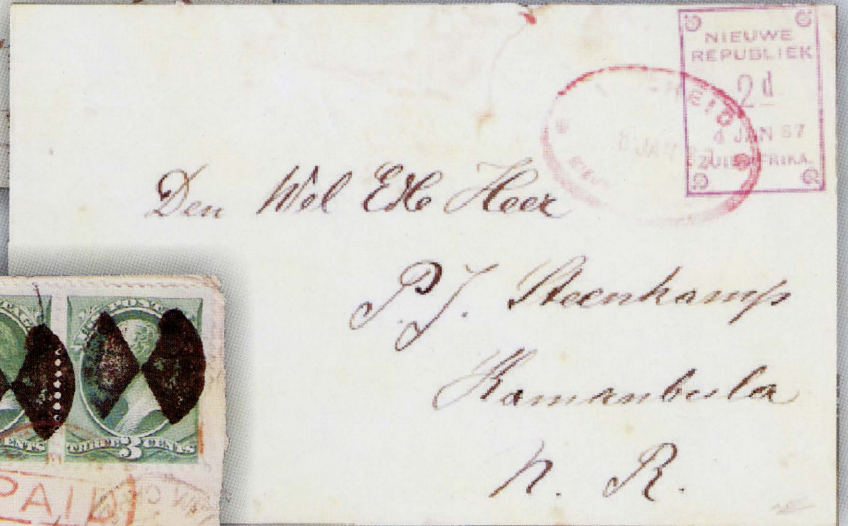 NIEUWE
REPUBLIEK
2d
4 JAN 87
ZUID AFRIKA.
HEID
JAN
Den Wel Ed Heer
P. J. Steenkamp
Kamanbula
N. R.
THREE 3 CENTS
CENTS
PAID